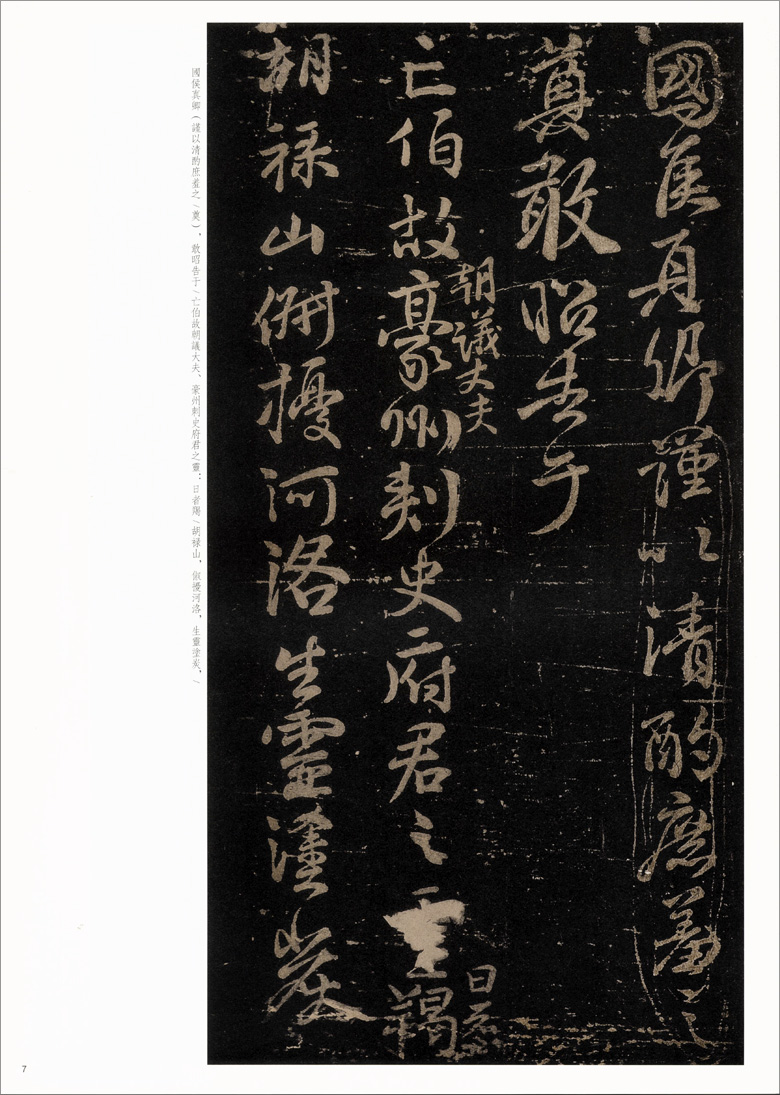 國侯真卿謹以清酌庶羞之
奠敢昭告于
朝議大夫
亡伯故豪州刺史府君之靈羯
日者
胡祿山俶擾河洛生靈塗炭
國侯真卿(謹以清酌庶羞之/奠),敢昭告于/亡伯故朝議大夫、豪州刺史府君之靈:日者羯/胡祿山,俶擾河洛,生靈塗炭,/
7